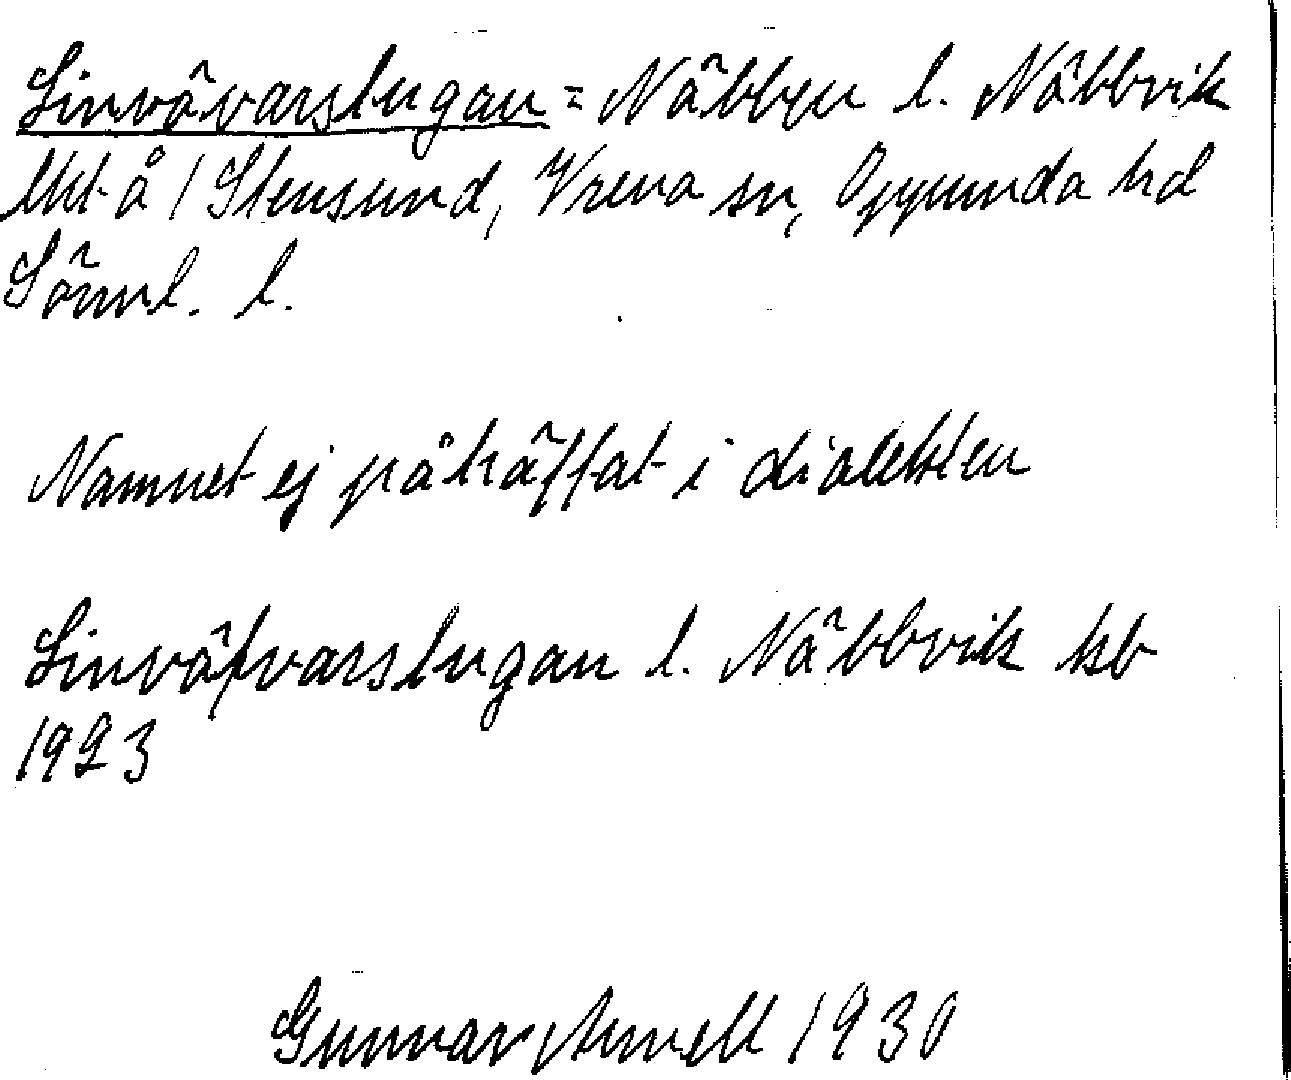 Linvävarstugan = Näbben l. Näbbvik
lht å 1 Stensund, Vrena sn, Oppunda hd
Sörml. l.
Namnet ej påträffat i dialekten
Linväfvarstugan l. Näbbvik kb
1923
Gunnar Arnell 1930